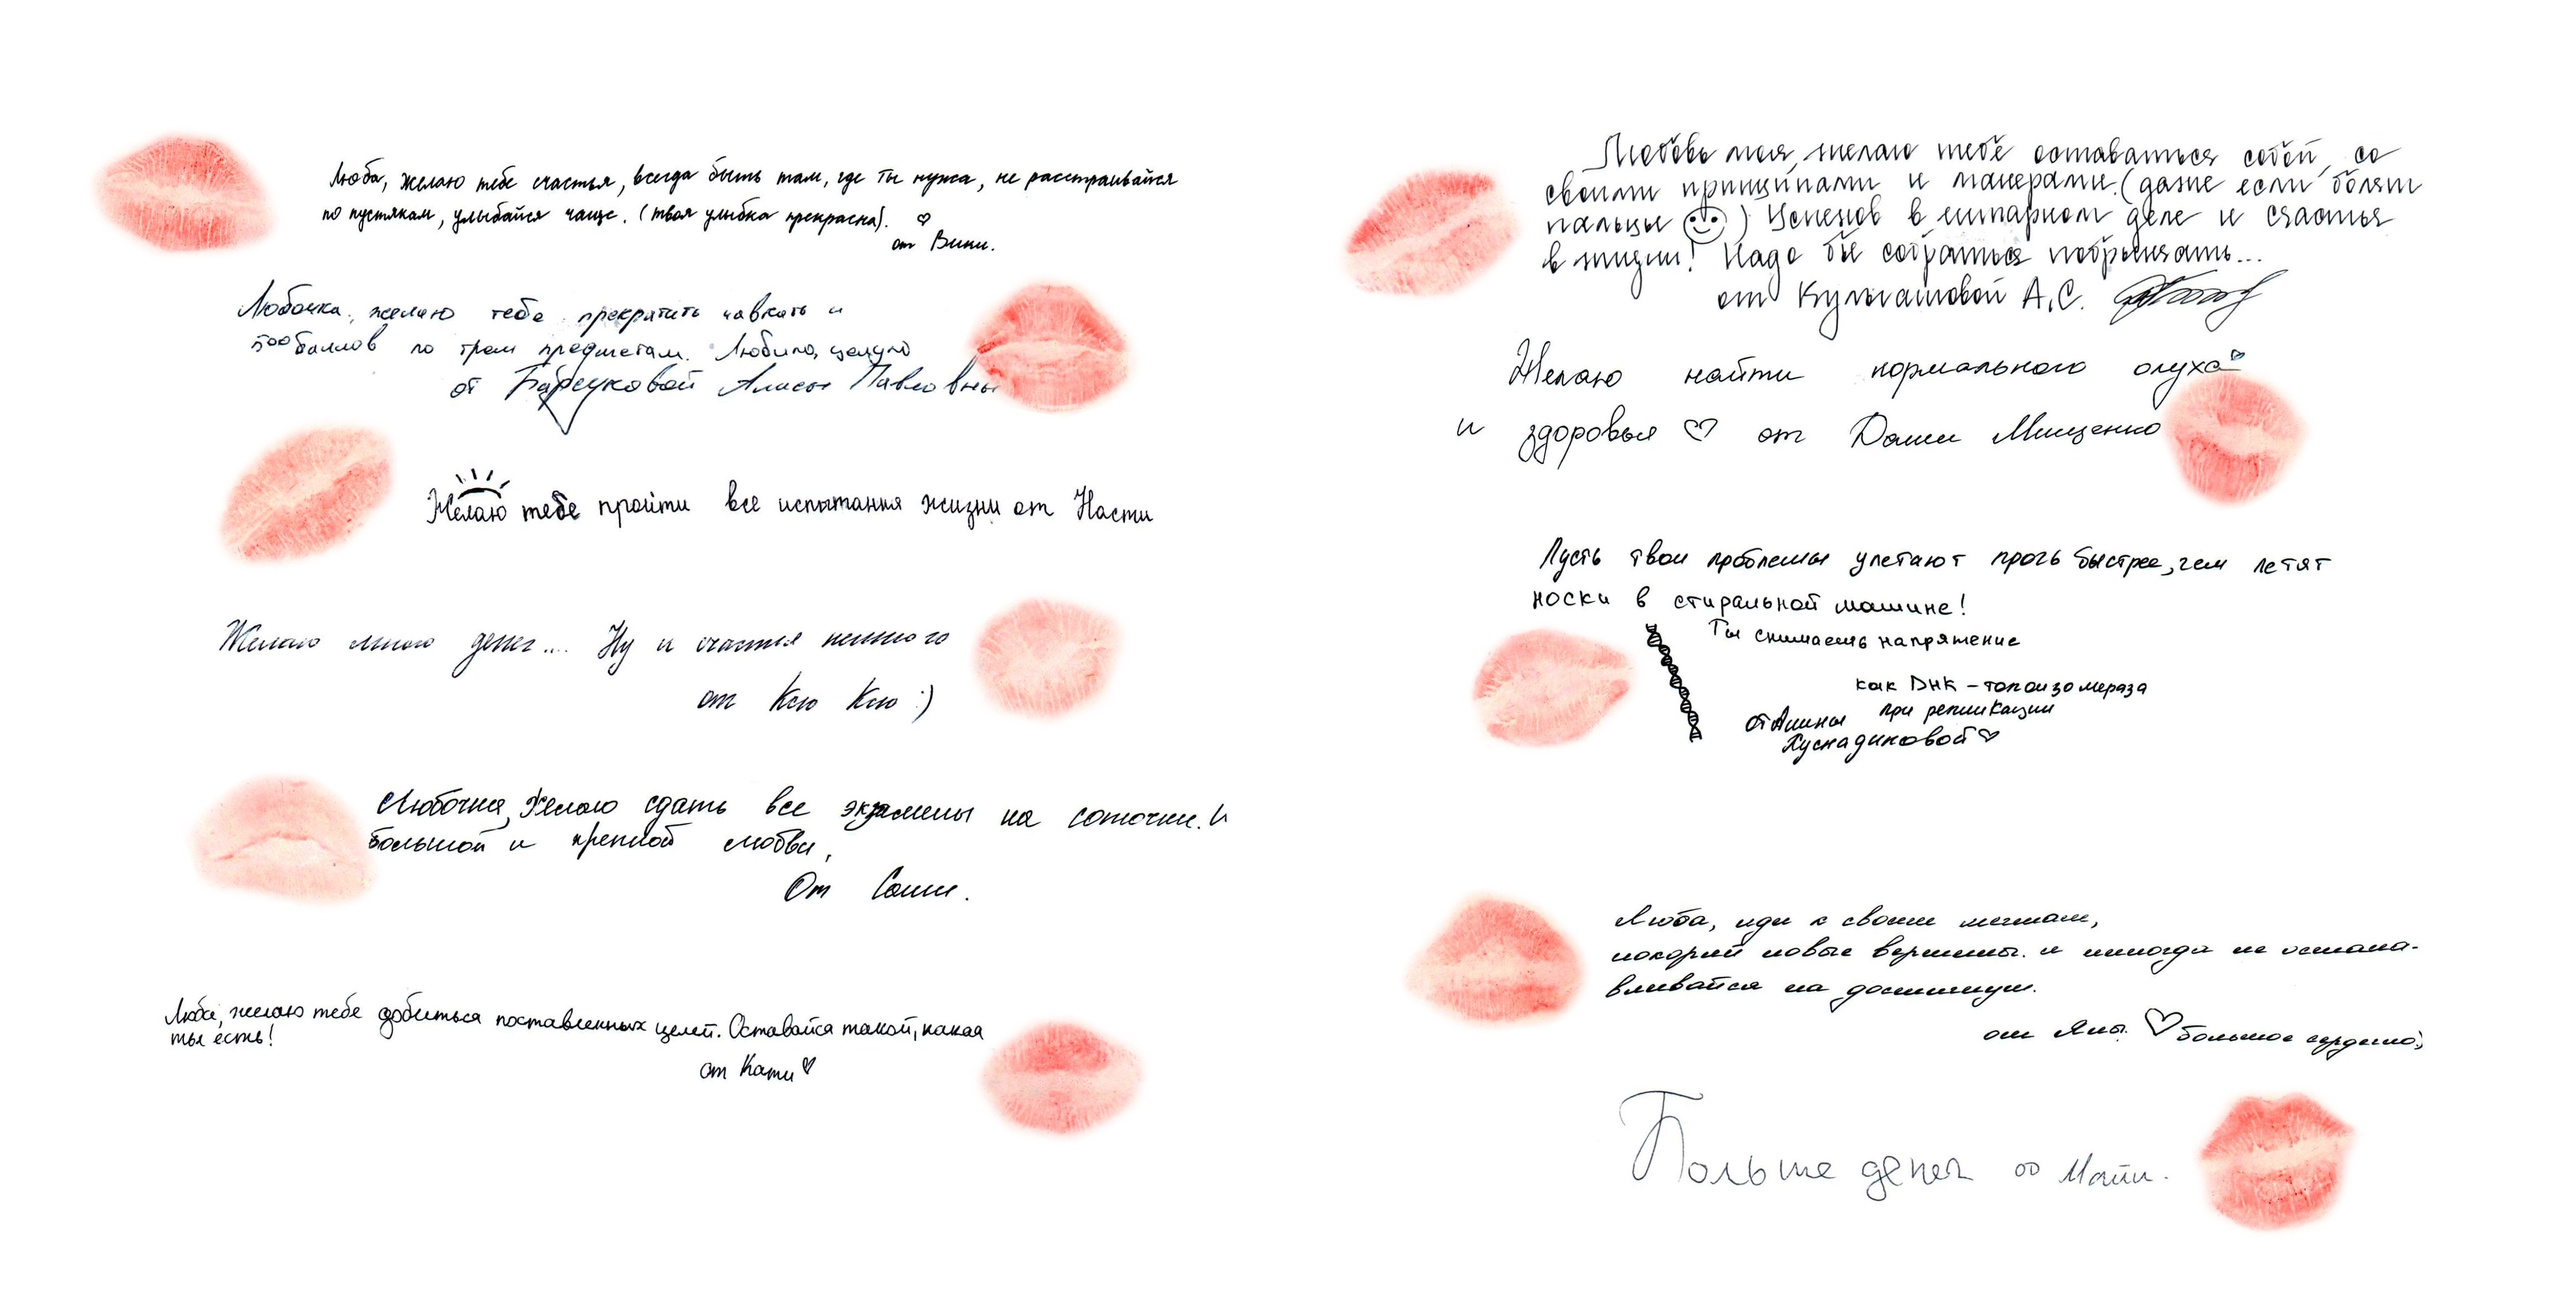 Люба, желаю тебе счастья, всегда быть там, где ты нужна, не расстраивайся
по пустякам, улыбайся чаще. (твоя улыбка прекрасна). ♡
от Вики.
Любочка, желаю тебе прекратить чавкать и
300 баллов по трем предметам. Люблю, целую
от Барсуковой Алисы Павловны
Желаю тебе пройти все испытания жизни от Насти
Желаю много денег.... Ну и счастья немного
от Ксю Ксю :)
Любочка, Желаю сдать все экзамены на соточки. И
большой и крепкой любви,
От Саши.
Люба, желаю тебе добиться поставленных целей. Оставайся такой, какая
ты есть!
от Кати ♡
Любовь моя, желаю тебе оставаться собой, со
своими принципами и манерами. (даже если болят
пальцы ☺) Успехов в гитарном деле и счастья
в жизни! Надо бы собраться побрынчать...
от А.С.
Желаю найти нормального олуха ♡
и здоровья ♡ от Даши Мищенко
Пусть твои проблемы улетают прочь быстрее, чем летят
носки в стиральной машине!
Ты снимаешь напряжение
как ДНК-топоизомераза
при репликации
от Алины
Хуснадиновой ♡
Люба, иди к своим мечтам,
покоряй новые вершины. и никогда не остана-
вливайся на достигнутом.
от Яны. ♡ большое сердечко;
Больше денег оо Майи.